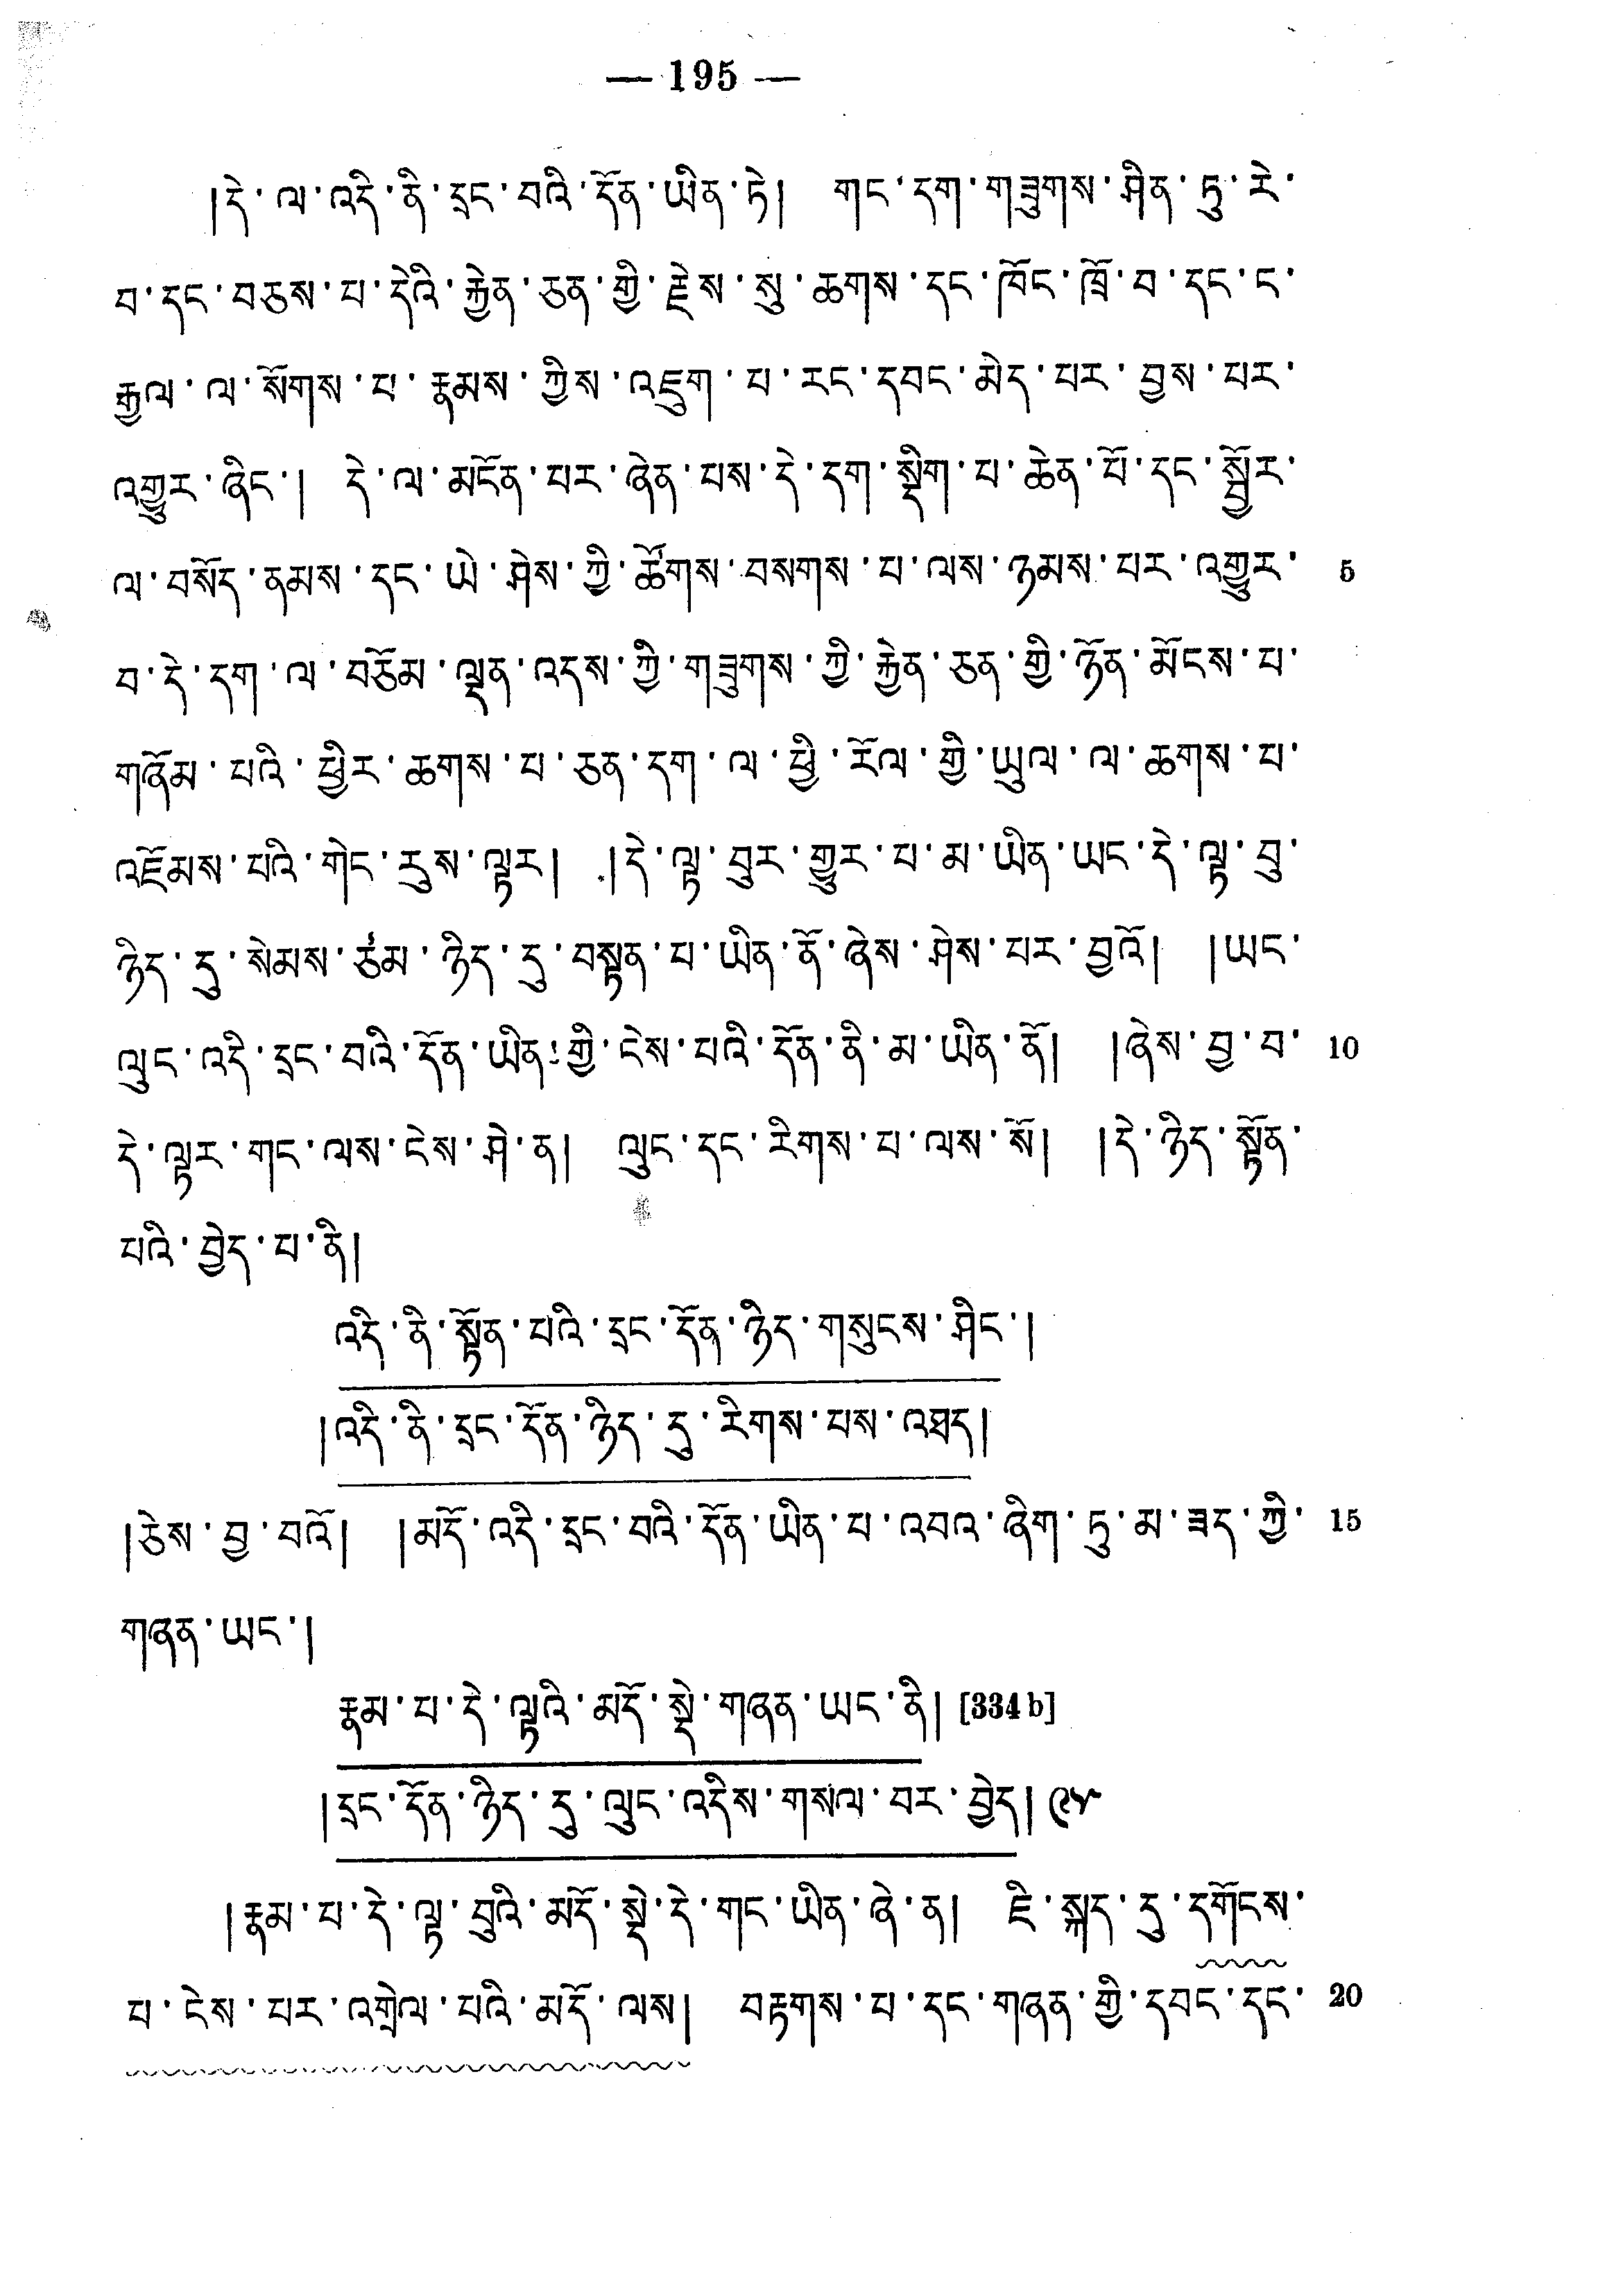 — 195 —
།དེ་ལ་འདི་ནི་དྲང་བའི་དོན་ཡིན་ཏེ། གང་དག་གཟུགས་ཤིན་ཏུ་རེ་
བ་དང་བཅས་པ་དེའི་རྐྱེན་ཅན་གྱི་རྗེས་སུ་ཆགས་དང་ཁོང་ཁྲོ་བ་དང་ང་
རྒྱལ་ལ་སོགས་པ་རྣམས་ཀྱིས་འཇུག་པ་རང་དབང་མེད་པར་བྱས་པར་
འགྱུར་ཞིང་། དེ་ལ་མངོན་པར་ཞེན་པས་དེ་དག་སྡིག་པ་ཆེན་པོ་དང་སྦྱོར་
ལ་བསོད་ནམས་དང་ཡེ་ཤེས་ཀྱི་ཚོགས་བསགས་པ་ལས་ཉམས་པར་འགྱུར་ 5
བ་དེ་དག་ལ་བཅོམ་ལྡན་འདས་ཀྱི་གཟུགས་ཀྱི་རྐྱེན་ཅན་གྱི་ཉོན་མོངས་པ་
གཞོམ་པའི་ཕྱིར་ཆགས་པ་ཅན་དག་ལ་ཕྱི་རོལ་གྱི་ཡུལ་ལ་ཆགས་པ་
འཇོམས་པའི་གེང་རུས་ལྟར། །དེ་ལྟ་བུར་གྱུར་པ་མ་ཡིན་ཡང་དེ་ལྟ་བུ་
ཉིད་དུ་སེམས་ཙམ་ཉིད་དུ་བསྟན་པ་ཡིན་ནོ་ཞེས་ཤེས་པར་བྱའོ། །ཡང་
ལུང་འདི་དྲང་བའི་དོན་ཡིན་གྱི་ངེས་པའི་དོན་ནི་མ་ཡིན་ནོ། །ཞེས་བྱ་བ་ 10
དེ་ལྟར་གང་ལས་ངེས་ཤེ་ན། ལུང་དང་རིགས་པ་ལས་སོ། །དེ་ཉིད་སྟོན་
པའི་བྱེད་པ་ནི།
འདི་ནི་སྟོན་པའི་དྲང་དོན་ཉིད་གསུངས་ཤིང་།
།འདི་ནི་དྲང་དོན་ཉིད་དུ་རིགས་པས་འཐད།
།ཅེས་བྱ་བའོ། །མདོ་འདི་དྲང་བའི་དོན་ཡིན་པ་འབའ་ཞིག་ཏུ་མ་ཟད་ཀྱི་ 15
གཞན་ཡང་།
རྣམ་པ་དེ་ལྟའི་མདོ་སྡེ་གཞན་ཡང་ནི། [334 b]
།དྲང་དོན་ཉིད་དུ་ལུང་འདིས་གསལ་བར་བྱེད། ༩༥
།རྣམ་པ་དེ་ལྟ་བུའི་མདོ་སྡེ་དེ་གང་ཡིན་ཞེ་ན། ཇི་སྐད་དུ་དགོངས་
པ་ངེས་པར་འགྲེལ་པའི་མདོ་ལས། བརྟགས་པ་དང་གཞན་གྱི་དབང་དང་ 20